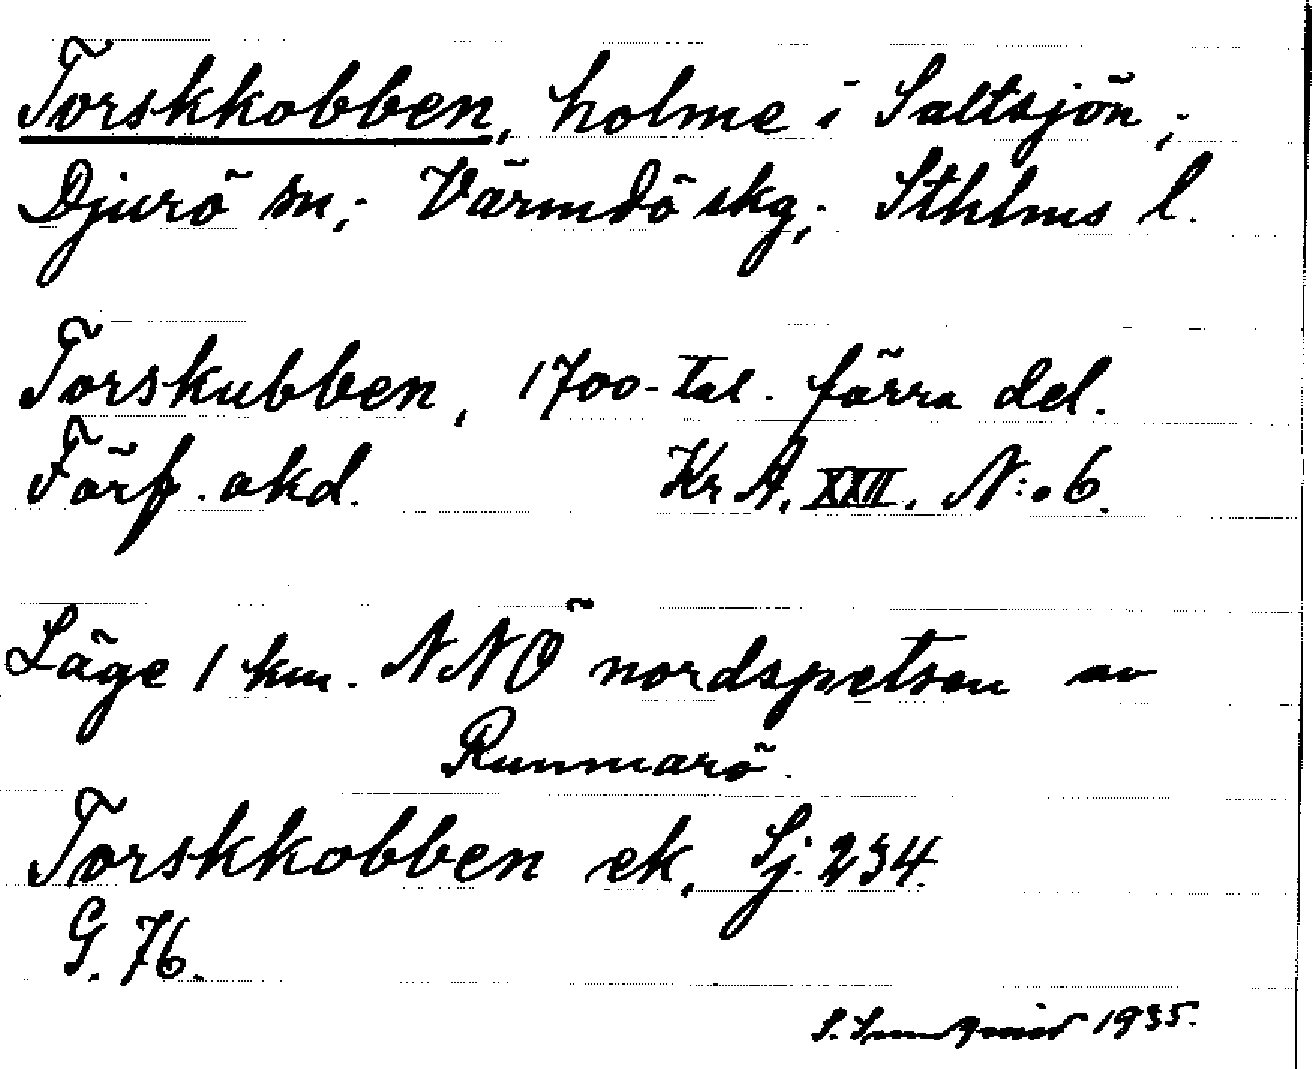 Torskkobben, holme i Saltsjön;
Djurö sn; Värmdö skg; Sthlms l.
Torskubben, 1700-tal. förra del.
Förf. okd. Kr A. XXII. N:o 6.
Läge 1 km. NNÖ nordspetsen av
Runmarö.
Torskkobben ek, Sj. 234
G. 76.
S. Sundqvist 1935.